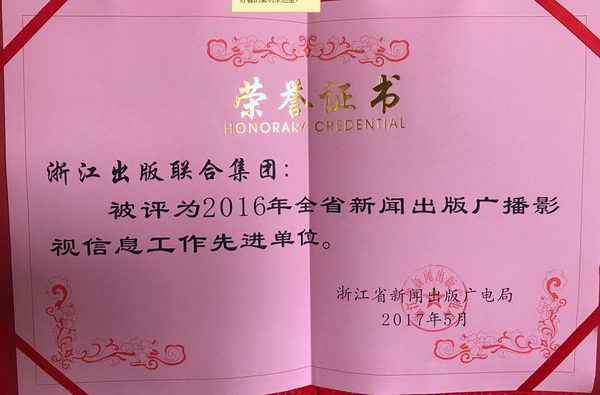 荣誉证书
HONORARY CREDENTIAL
浙江出版联合集团：
被评为2016年全省新闻出版广播影
视信息工作先进单位。
浙江省新闻出版广电局
2017年5月